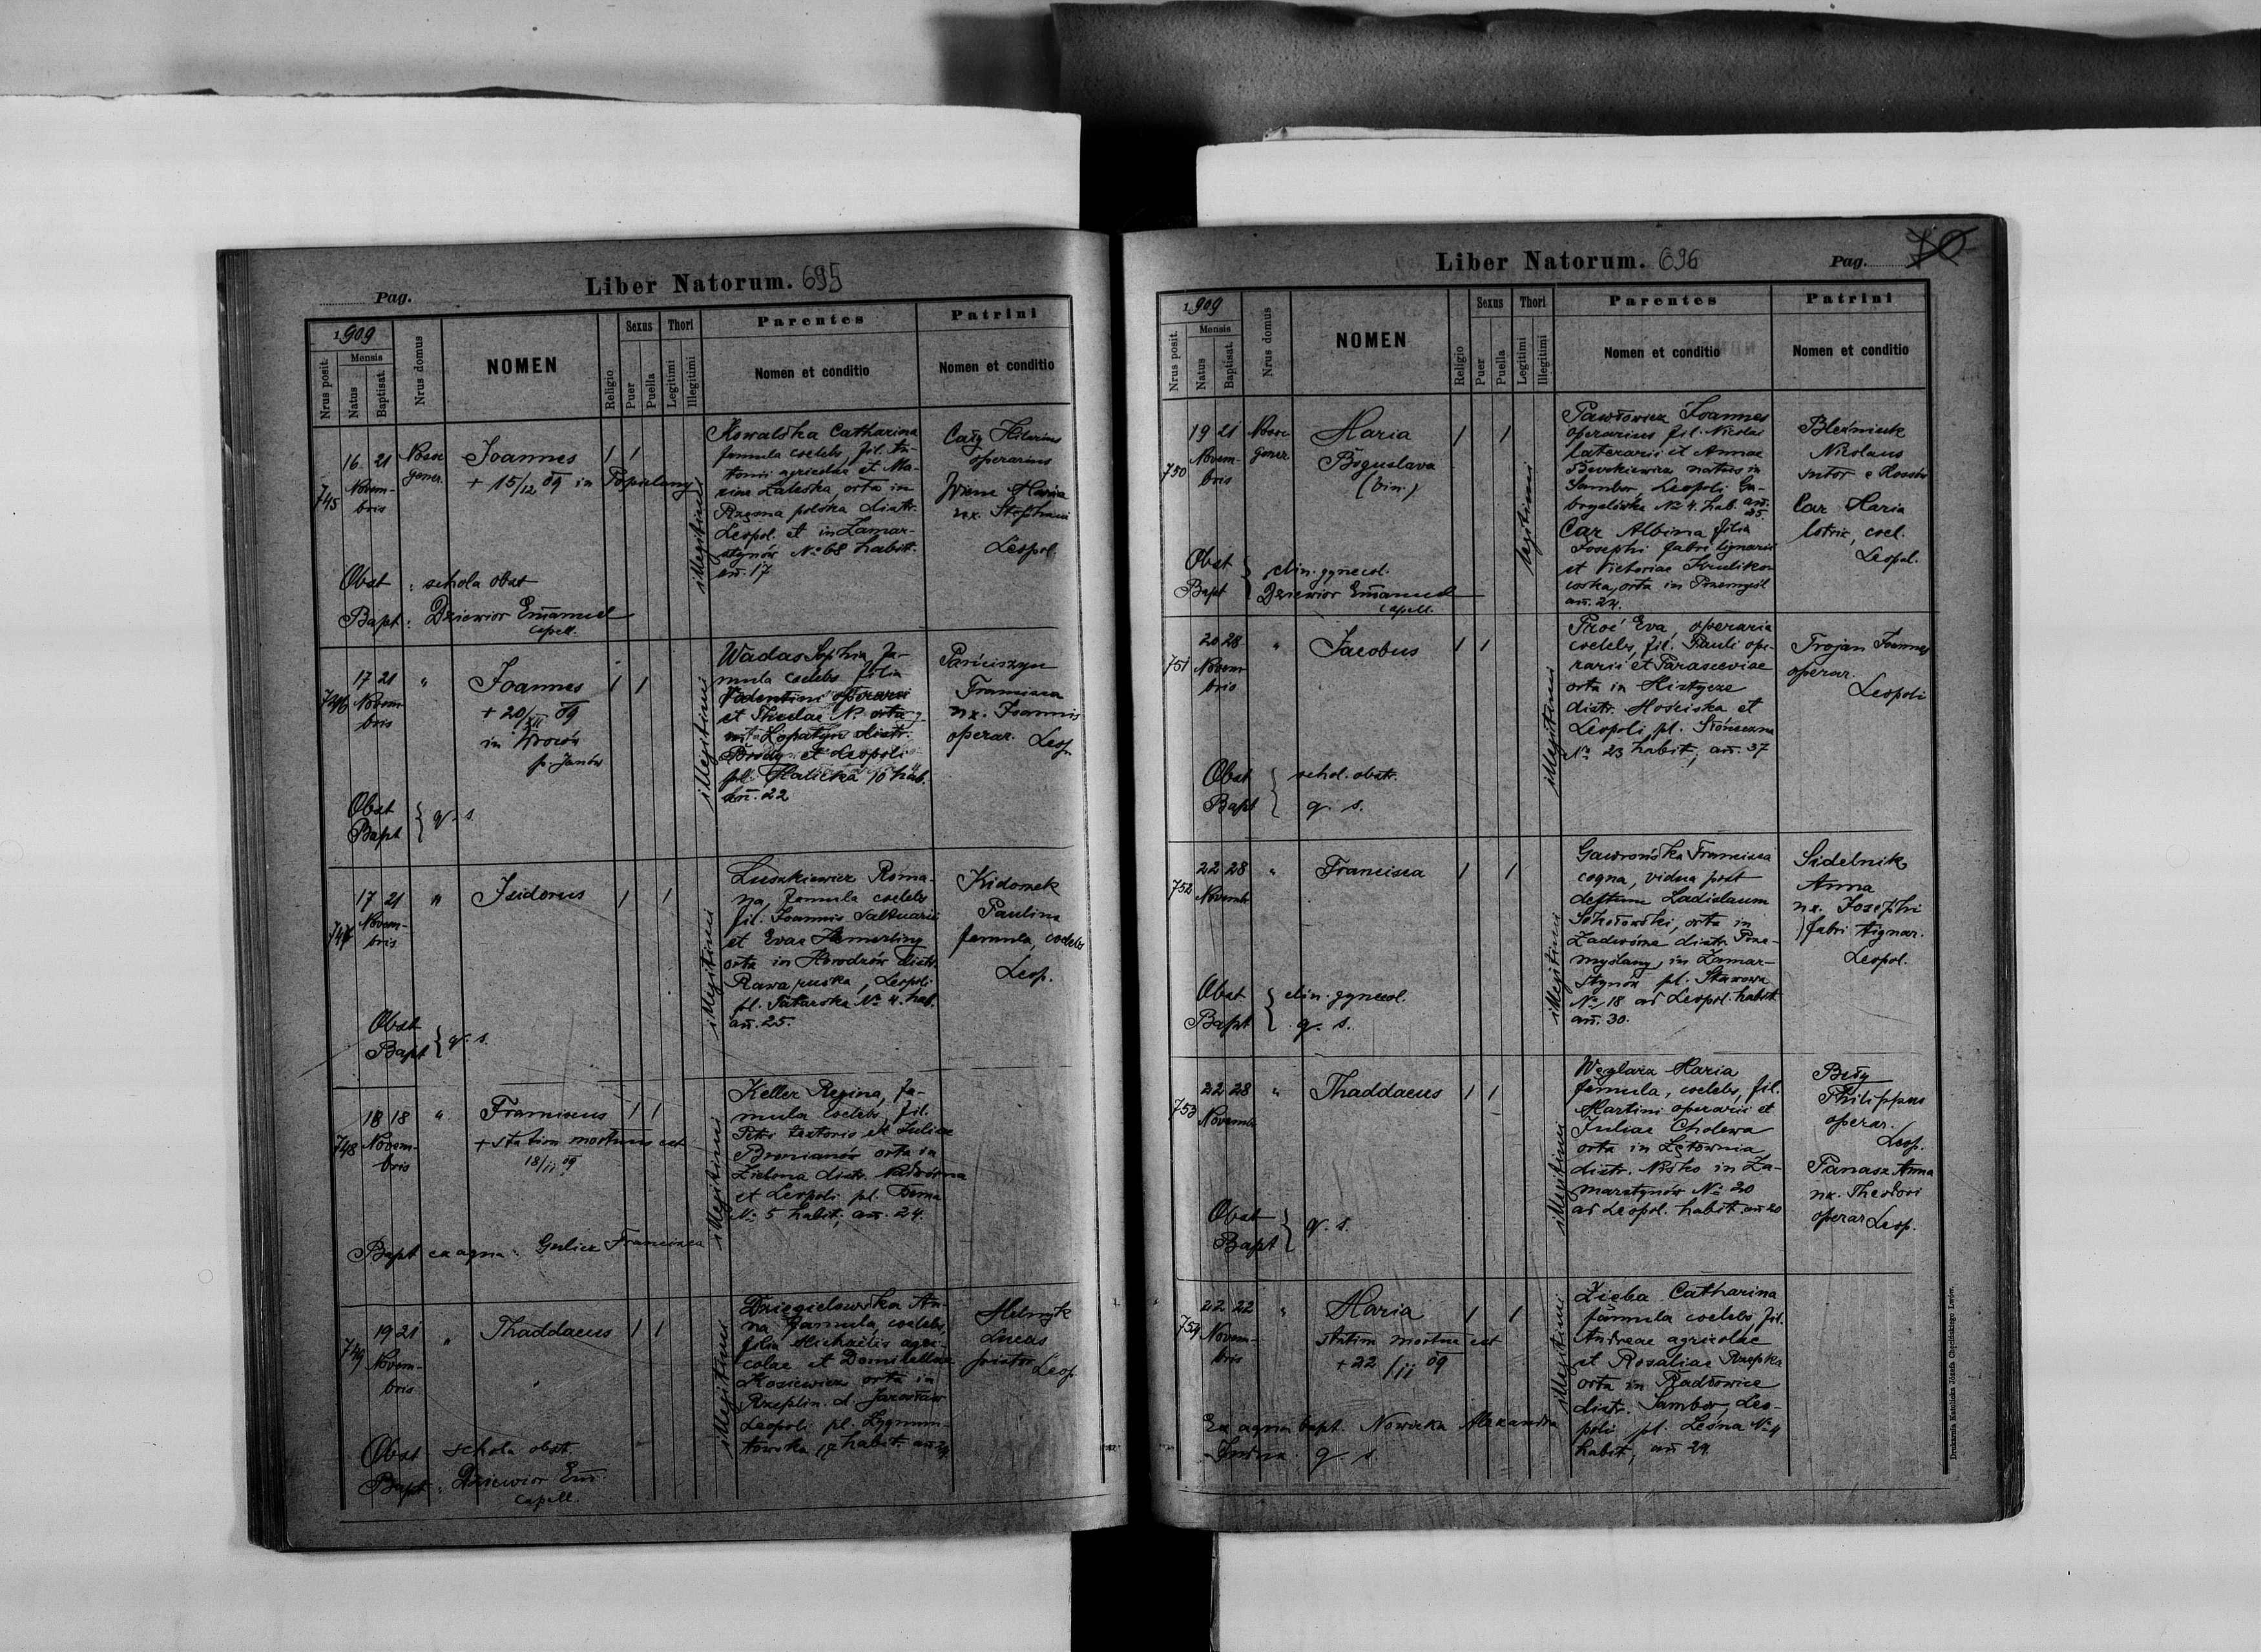 Pag.
Liber Natorum. 695
1909
Nrus posit.
Mensis
Natus
Baptisat.
Nrus domus
NOMEN
Religio
Sexus
Puer
Puella
Thori
Legitimi
Illegitimi
Parentes
Nomen et conditio
Patrini
Nomen et conditio
745
16 21
Novem-
bris
Nosoc
gener.
Joannes
+ 15/12 09 in Popielany
1 1
illegitimi
Kowalska Catharina
famula coelebs, fil. An-
tonii agricolae et Ma-
riae Zaleska, orta in
Rzęsna polska distr.
Leopol. et in Zamar-
stynów No 68 habit.
an. 17
Cały Hilarius
operarius
Maria
ux. Stephani
Leopol.
Obst : schola obst
Bapt : Dziewior Emanuel
capell.
746
17 21
Novem-
bris
"
Joannes
+ 20/XII 09
in
p. Janów
1 1
illegitimi
Wadas Sophia fa-
mula coelebs filia
Valentini operarii
et Theclae N. orta
Łopatyn distr.
Brody et Leopoli
pl. Halicka 10 hab.
an. 22
Pańciszyn
Francisca
ux. Joannis
operar. Leop.
Obst
Bapt } q. s.
747
17 21
Novem-
bris
"
Isidorus
1 1
illegitimi
Luszkiewicz Roma-
na, famula coelebs
fil. Joannis saltuarii
et Evae Hemerling
orta in Horodzów distr.
Rawa ruska, Leopoli
pl. Tatarska No 4. hab.
an. 25.
Kidomek
Paulina
famula, coelebs
Leop.
Obst
Bapt } q. s.
748
18 18
Novem-
bris
"
Franciscus
+ statim mortuus est
18/11 09
1 1
illegitimi
Keller Regina, fa-
mula coelebs, fil.
Petri textoris et Juliae
orta in
Zielona distr. Nadwórna
et Leopoli pl. Bema
No 5 habit; an. 24.
Bapt ex aqua : Francisca
749
19 21
Novem-
bris
"
Thaddaeus
1 1
illegitimi
Dzięgielowska An-
na, famula, coelebs,
filia Michaelis agri-
colae et Domitellae
Kosiewicz orta in
Rzeplin d. Jarosław
Leopoli pl. Zygmun-
towska 17 habit. an. 24
Lucas
Leop.
Obst schola obst.
Bapt : Dziewior Em.
capell.
Liber Natorum. 696
Pag. 70
1909
Nrus posit.
Mensis
Natus
Baptisat.
Nrus domus
NOMEN
Religio
Sexus
Puer
Puella
Thori
Legitimi
Illegitimi
Parentes
Nomen et conditio
Patrini
Nomen et conditio
750
19 21
Novem-
bris
Nosoc
gener
Maria
Boguslava
(bin.)
1 1
legitimi
Pawłowicz Joannes
operarius fil. Nicolai
laterarii et Annae
natus in
Sambor, Leopoli Ga-
brielówka No 4. hab. an.
25.
Car Albina filia
Josephi fabri lignarii
et Victoriae
orta in Przemyśl
an. 24.
Nicolaus
sutor
Car Maria
lotrix, coel.
Leopol.
Obst
Bapt { clin. gynecol.
Dziewior Emanuel
capell.
751
20 28
Novem-
bris
"
Jacobus
1 1
illegitimi
Proć Eva, operaria
coelebs, fil. Pauli ope-
rarii et Parasceviae
orta in Mistycze
distr. Mościska et
Leopoli, pl. Słoneczna
No 23 habit; an. 37
Trojan Joannes
operar.
Leopoli
Obst
Bapt { schol. obstr.
q. s.
752
22 28
Novemb
"
Francisca
1 1
illegitimi
Gawrońska Francisca
coqua, vidua post
defunctum Ladislaum
Sokołowski, orta in
Zadwórze distr. Prze-
myślany, in Zamar-
stynów pl. Stawowa
No 18 ad Leopol. habit
an. 30.
Sidelnik
Anna
ux. Josephi
fabri lignar.
Leopol.
Obst
Bapt { clin. gynecol.
q. s.
753
22 28
Novemb
"
Thaddaeus
1 1
illegitimi
Węglarz Maria
famula, coelebs, fil.
Martini operarii et
Juliae Cholewa
orta in Łętownia
distr. Nisko in Za-
marstynów No 20
ad Leopol. habit an 20
Philippus
operar.
Leop.
Panasz Anna
ux. Theodori
operar Leop.
Obst
Bapt } q. s.
754
22 22
Novem-
bris
"
Maria
statim mortua est
+ 22/11 09
1 1
illegitimi
Zięba Catharina
famula coelebs, fil.
Andreae agricolae
et Rosaliae Rzepka
orta in Radłowice
distr. Sambor, Leo-
poli pl. Leśna No 4
habit, an 24.
Ex aqua bapt. Nowicka Alexandra
q s.
Drukarnia Katolicka Józefa Chęcińskiego Lwów.